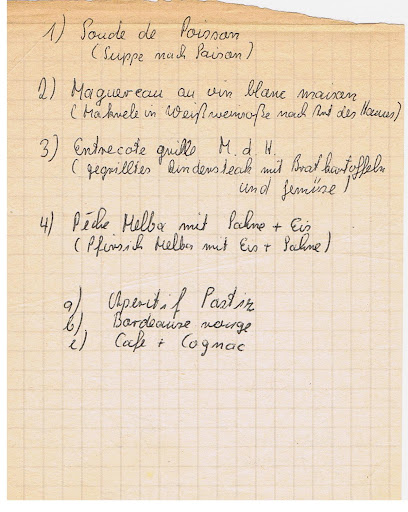 1) Soude de Poisson
(Suppe nach Saison)
2) Maquereau au vin blanc maison
(Makrele in Weißweinsoße nach Art des Hauses)
3) Entrecote grille M. d H.
(gegrilltes Rindersteak mit Bratkartoffeln
und Gemüse)
4) Pêche Melba mit Sahne + Eis
(Pfirsich Melba mit Eis + Sahne)
a) Aperitif Pastis
b) Bordeause rouge
c) Cafe + Cognac